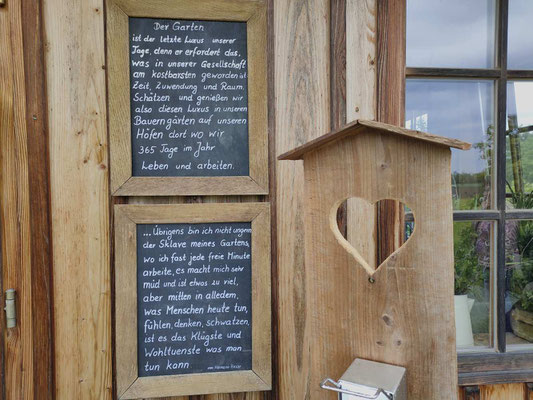 Der Garten
ist der letzte Luxus unserer
Tage, denn er erfordert das,
was in unserer Gesellschaft
am kostbarsten geworden ist
Zeit, Zuwendung und Raum.
Schätzen und genießen wir
also diesen Luxus in unseren
Bauerngärten auf unseren
Höfen dort wo wir
365 Tage im Jahr
Leben und arbeiten.
...Übrigens bin ich nicht ungerne
der Sklave meines Gartens,
wo ich fast jede freie Minute
arbeite, es macht mich sehr
müd und ist etwas zu viel,
aber mitten in alledem,
was Menschen heute tun,
fühlen, denken, schwatzen,
ist es das Klügste und
Wohltuenste was man
tun kann